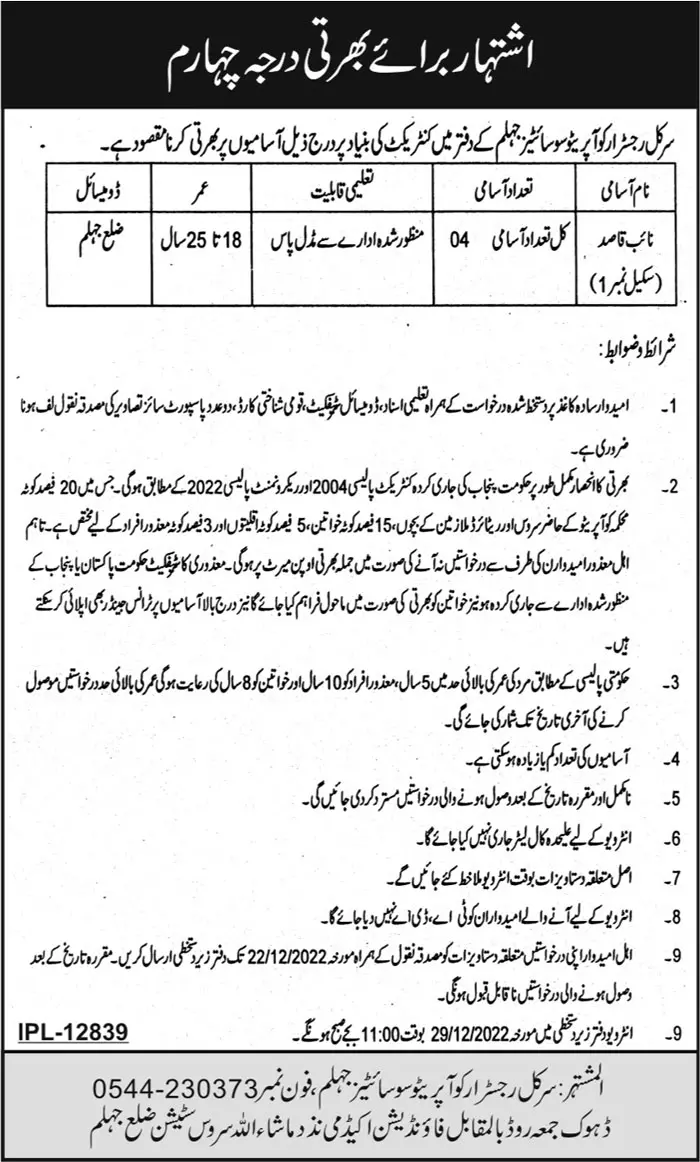 اشتہار برائے بھرتی درجہ چہارم
سرکل رجسٹرار کوآپریٹو سوسائٹیز جہلم کے دفتر میں کنٹریکٹ کی بنیاد پر درج ذیل آسامیوں پر بھرتی کرنا مقصود ہے۔
نام آسامی تعداد آسامی تعلیمی قابلیت عمر ڈومیسائل
نائب قاصد کل تعداد آسامی 04 منظور شدہ ادارے سے مڈل پاس 18 تا 25 سال ضلع جہلم
(سکیل نمبر 1)
شرائط و ضوابط:
1۔ امیدوار سادہ کاغذ پر دستخط شدہ درخواست کے ہمراہ تعلیمی اسناد، ڈومیسائل سٹرٹیفکیٹ، قومی شناختی کارڈ، دو عدد پاسپورٹ سائز تصاویر کی مصدقہ نقول لف ہونا
ضروری ہے۔
2۔ بھرتی کا انحصار مکمل طور پر حکومت پنجاب کی جاری کردہ کنٹریکٹ پالیسی 2004 اور ریکروٹمنٹ پالیسی 2022 کے مطابق ہوگی۔ جس میں 20 فیصد کوٹہ
محکمہ کوآپریٹو کے حاضر سروس اور ریٹائرڈ ملازمین کے بچوں، 15 فیصد کوٹہ خواتین، 5 فیصد کوٹہ اقلیتوں اور 3 فیصد کوٹہ معذور افراد کے لیے مختص ہے۔ تاہم
اہل معذور امیدواران کی طرف سے درخواستیں نہ آنے کی صورت میں جملہ بھرتی اوپن میرٹ پر ہوگی۔ معذوری کا سٹرٹیفکیٹ حکومت پاکستان یا پنجاب کے
منظور شدہ ادارے سے جاری کردہ ہو نیز خواتین کو بھرتی کی صورت میں ماحول فراہم کیا جائے گا نیز درج بالا آسامیوں پر ٹرانس جینڈر بھی اپلائی کر سکتے
ہیں۔
3۔ حکومتی پالیسی کے مطابق مرد کی عمر کی بالائی حد میں 5 سال، معذور افراد کو 10 سال اور خواتین کو 8 سال کی رعایت ہوگی عمر کی بالائی حد درخواستیں موصول
کرنے کی آخری تاریخ تک شمار کی جائے گی۔
4۔ آسامیوں کی تعداد کم یا زیادہ ہوسکتی ہے۔
5۔ نامکمل اور مقررہ تاریخ کے بعد وصول ہونے والی درخواستیں مسترد کر دی جائیں گی۔
6۔ انٹرویو کے لیے علیحدہ کال لیٹر جاری نہیں کیا جائے گا۔
7۔ اصل متعلقہ دستاویزات بوقت انٹرویو ملاحظہ کئے جائیں گے۔
8۔ انٹرویو کے لیے آنے والے امیدواران کو ٹی اے، ڈی اے نہیں دیا جائے گا۔
9۔ اہل امیدوار اپنی درخواستیں متعلقہ دستاویزات کو مصدقہ نقول کے ہمراہ مورخہ 22/12/2022 تک دفتر زیر دستخطی ارسال کریں۔ مقررہ تاریخ کے بعد
وصول ہونے والی درخواستیں ناقابل قبول ہونگی۔
9۔ انٹرویو دفتر زیر دستخطی میں مورخہ 29/12/2022 بوقت 11:00 بجے صبح ہونگے۔
IPL-12839
المشتہر: سرکل رجسٹرار کوآپریٹو سوسائٹیز جہلم، فون نمبر 0544-230373
ڈہوک جمعہ روڈ بالمقابل فاؤنڈیشن اکیڈمی نزد ماشاء اللہ سروس سٹیشن ضلع جہلم